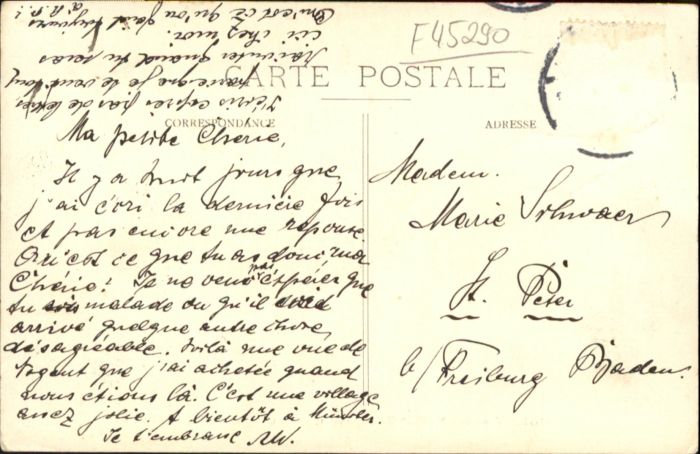 F45290
CARTE POSTALE
CORRESPONDANCE
ADRESSE
Ma petite Cherie,
Il y a huit jours que
j'ai écri la dernière fois
et pas encore une reponse.
Qu'est ce que tu as donc ma
Chérie? Je ne veux pas espérer que
tu sois malade ou qu'il soit
arrivé quelque autre chose
désagréable. Voilà une vue de
Nogent que j'ai achetée quand
nous étions là. C'est une village
assez jolie. A bientôt à Münster.
Je t'embrasse AW.
J'écris exprès pas de lettre
parceque je te veux tout
raconter quand tu seras
ici chez moi.
Qu'est ce qu'on fait toujours
à St. P.!
Madem.
Marie Schwaer
St. Peter
b/Freiburg Baden.